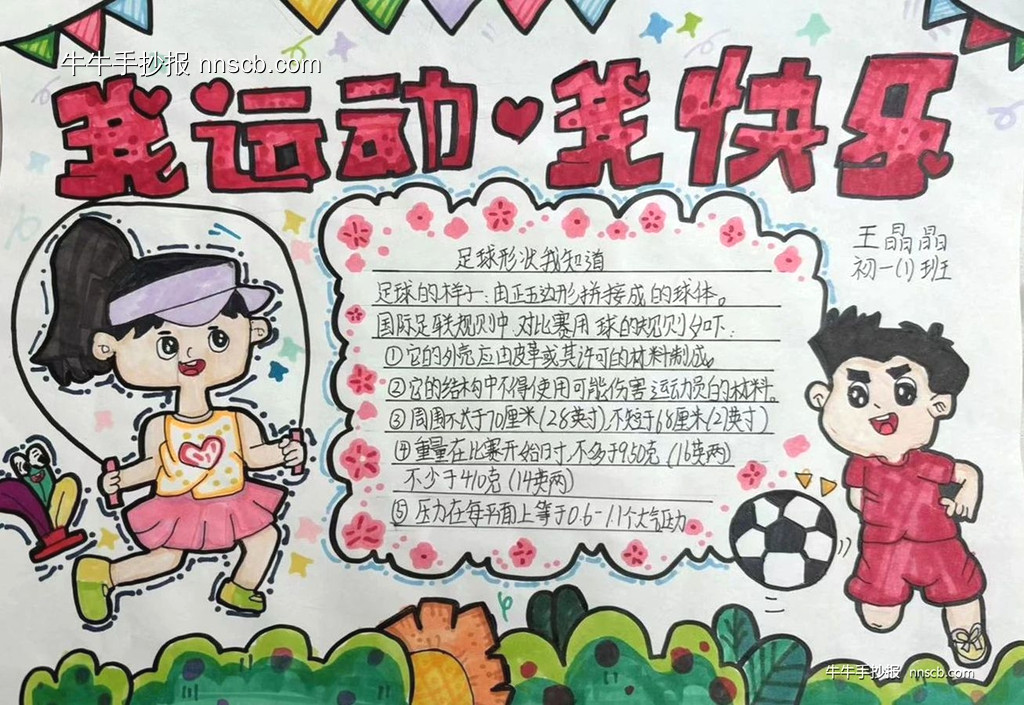 牛牛手抄报 nnscb.com
我运动我快乐
王晶晶
初一(1)班
足球形状我知道
足球的样子:由正五边形拼接成的球体。
国际足联规则中,对比赛用球的规则如下:
①它的外壳应由皮革或其许可的材料制成。
②它的结构中不得使用可能伤害运动员的材料。
③周围不长于70厘米(28英寸),不短于68厘米(27英寸)
④重量在比赛开始时,不多于950克(16英两)
不少于410克(14英两)
⑤压力在每平面上等于0.6-1.1个大气压力
牛牛手抄报 nnscb.com